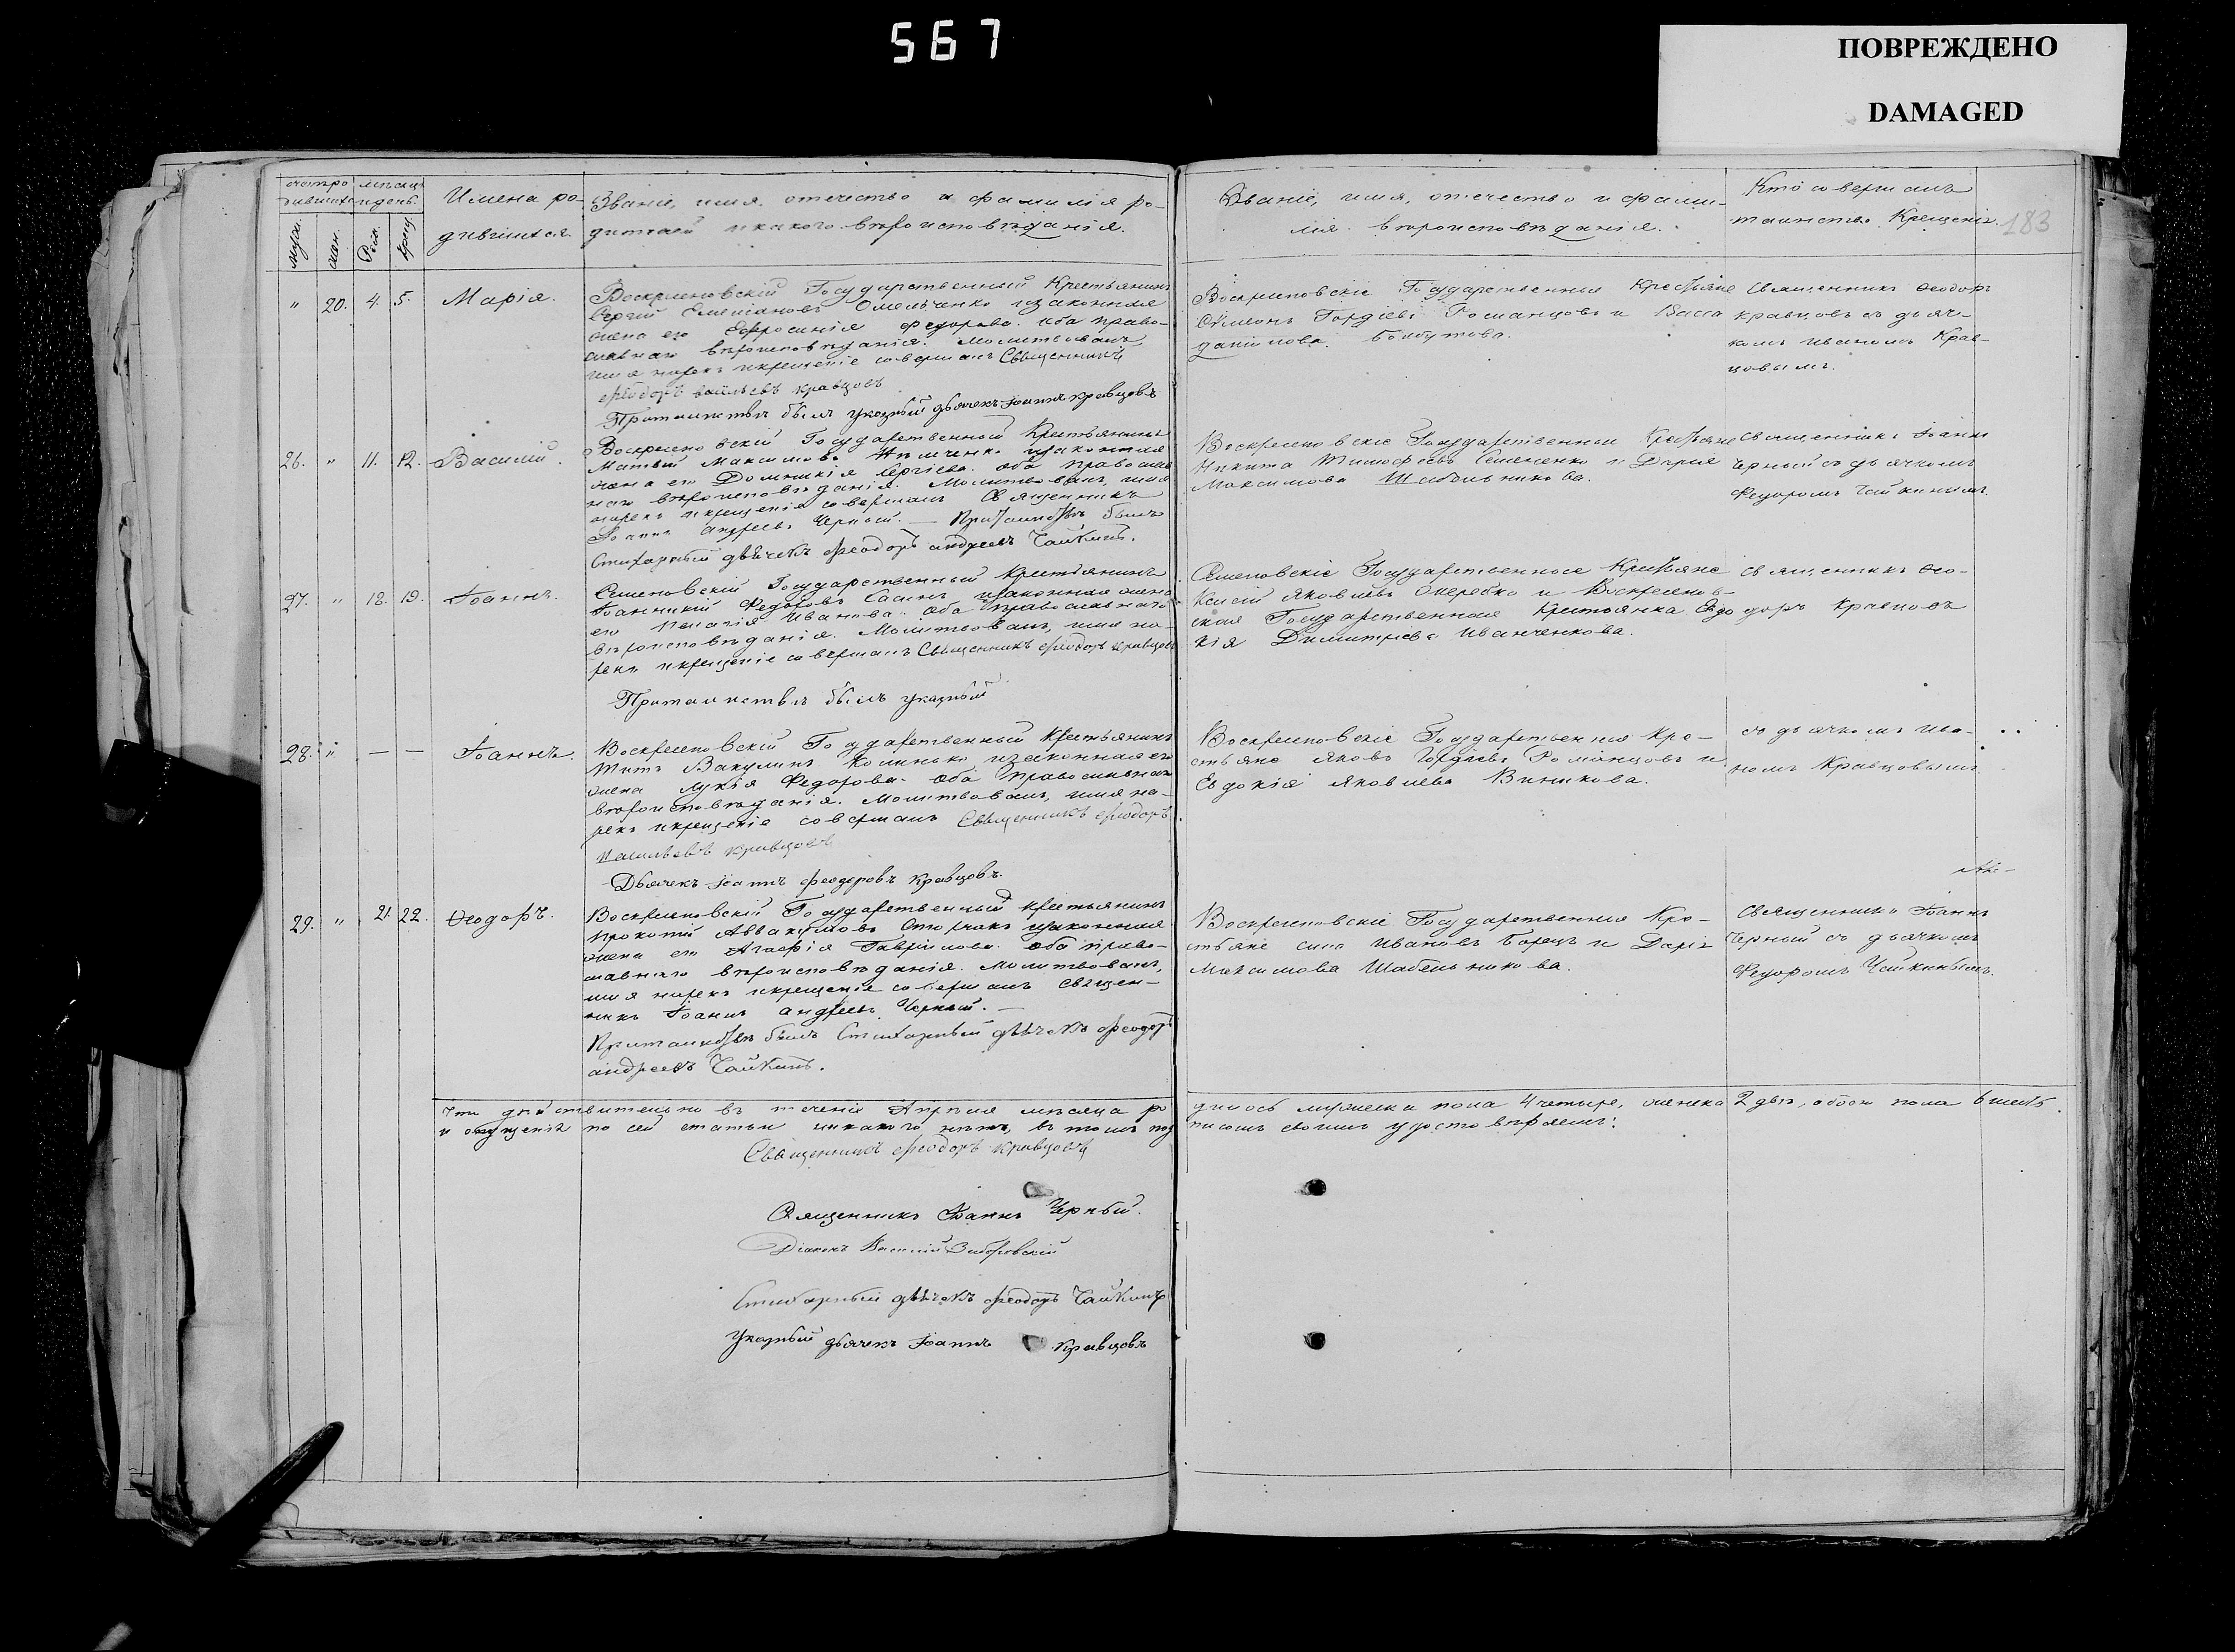 567
ПОВРЕЖДЕНО
DAMAGED
183
Имена ро-
дившихся.
Званіе, имя, отечество и фамилія ро-
дителей и какого вѣроисповѣданія.
Званіе, имя, отечество и фами-
лія вѣроисповѣданія.
Кто совершалъ
таинство Крещенія.
" 20. 4. 5. Марія.
Воскресеновскій Государственный Крестьянинъ
Сергій Емельяновъ Омельченко и законная
жена его Ефросинія Федорова. оба право-
славнаго вѣроисповѣданія. Молитвовалъ
имя нарекъ и крещеніе совершалъ Священникъ
Феодоръ Васильевъ Кравцовъ
При таинствѣ былъ указный дьячекъ Іоаннъ Кравцовъ
Воскресеновскіе Государственные Крестьяне
Симеонъ Гордіевъ Романцовъ и Васса
Данилова
Священникъ Феодоръ
Кравцовъ съ дьяч-
комъ Иваномъ Крав-
цовымъ.
26. " 11. 12. Василій.
Воскресеновскій Государственный Крестьянинъ
Матвѣй Максимовъ Нѣмченко и законная
жена его Домникія Сергіева. оба православ
наго вѣроисповѣданія. Молитвовалъ, имя
нарекъ и крещенія совершалъ Священникъ
Іоаннъ Андреевъ Черный. — При таинствѣ былъ
Стихарный дьячекъ Феодоръ Андреевъ Чайкинъ.
Воскресеновскіе Государственные Крестьяне
Никита Тимофеевъ Семененко и Дарія
Максимова Шабельникова.
Священникъ Іоаннъ
Черный съ дьячкомъ
Федоромъ Чайкинымъ.
27. " 18. 19. Іоаннъ.
Семеновскій Государственный Крестьянинъ
Іоанникій Федоровъ и законная жена
его Пелагія Иванова. оба православнаго
вѣроисповѣданія. Молитвовалъ, имя на-
рекъ и крещеніе совершалъ Священникъ Феодоръ Кравцовъ
При таинствѣ былъ указный
Семеновскіе Государственные Крестьяне
Яковлевъ и Воскресенов-
ская Государственная Крестьянка Евдо
кія Димитріева Иванченкова.
Священникъ Фео-
доръ Кравцовъ
28. " — — Іоаннъ.
Воскресеновскій Государственный Крестьянинъ
Титъ Вакулинъ и законная его
жена Лукія Федорова. Оба православнаго
вѣроисповѣданія. Молитвовалъ, имя на-
рекъ и крещеніе совершалъ Священникъ Феодоръ
Васильевъ Кравцовъ
Дьячекъ Іоаннъ Феодоровъ Кравцовъ.
Воскресеновскіе Государственные Кре-
стьяне Яковъ Гордіевъ Романцовъ и
Евдокія Яковлева Винникова.
съ дьячкомъ Ива-
номъ Кравцовымъ
29. " 21. 22. Феодоръ.
Воскресеновскій Государственный Крестьянинъ
Прокопій Аввакумовъ и законная
жена его Агафія Гаврилова. оба право-
славнаго вѣроисповѣданія. Молитвовалъ,
имя нарекъ и крещеніе совершалъ Священ-
никъ Іоаннъ Андреевъ Черный. —
При таинствѣ былъ Стихарный дьячекъ Феодоръ
Андреевъ Чайкинъ.
Воскресеновскіе Государственные Кре-
стьяне Сила Ивановъ Борецъ и Дарія
Максимова Шабельникова.
Священникъ Іоаннъ
Черный съ дьячкомъ
Федоромъ Чайкинымъ.
Что дѣйствительно въ теченіи Апрѣля мѣсяца ро
дилось мужеска пола 4 четыре, женска 2 двѣ, обоего пола 6 шесть
и опущенія по сей статьи никакого нѣтъ, въ томъ под
писомъ своимъ удостовѣряемъ:
Священникъ Феодоръ Кравцовъ
Священникъ Іоаннъ Черный.
Діаконъ Василій
Стихарный дьячекъ Феодоръ Чайкинъ
Указный дьячекъ Іоаннъ Кравцовъ